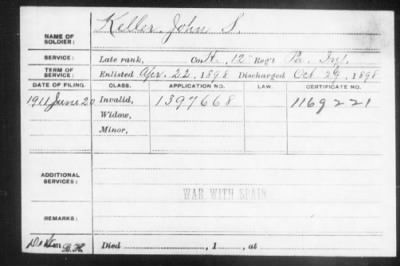 NAME OF SOLDIER: Keller, John S.
SERVICE: Late rank, Co. H, 12 Reg't Pa. Inf.
TERM OF SERVICE: Enlisted Apr. 22, 1898 Discharged Oct 29, 1898
DATE OF FILING. CLASS. APPLICATION NO. LAW. CERTIFICATE NO.
1911 June 20 Invalid, 1397668 1169221
Widow,
Minor,
ADDITIONAL SERVICES:
WAR WITH SPAIN
REMARKS:
Died , 1 , at